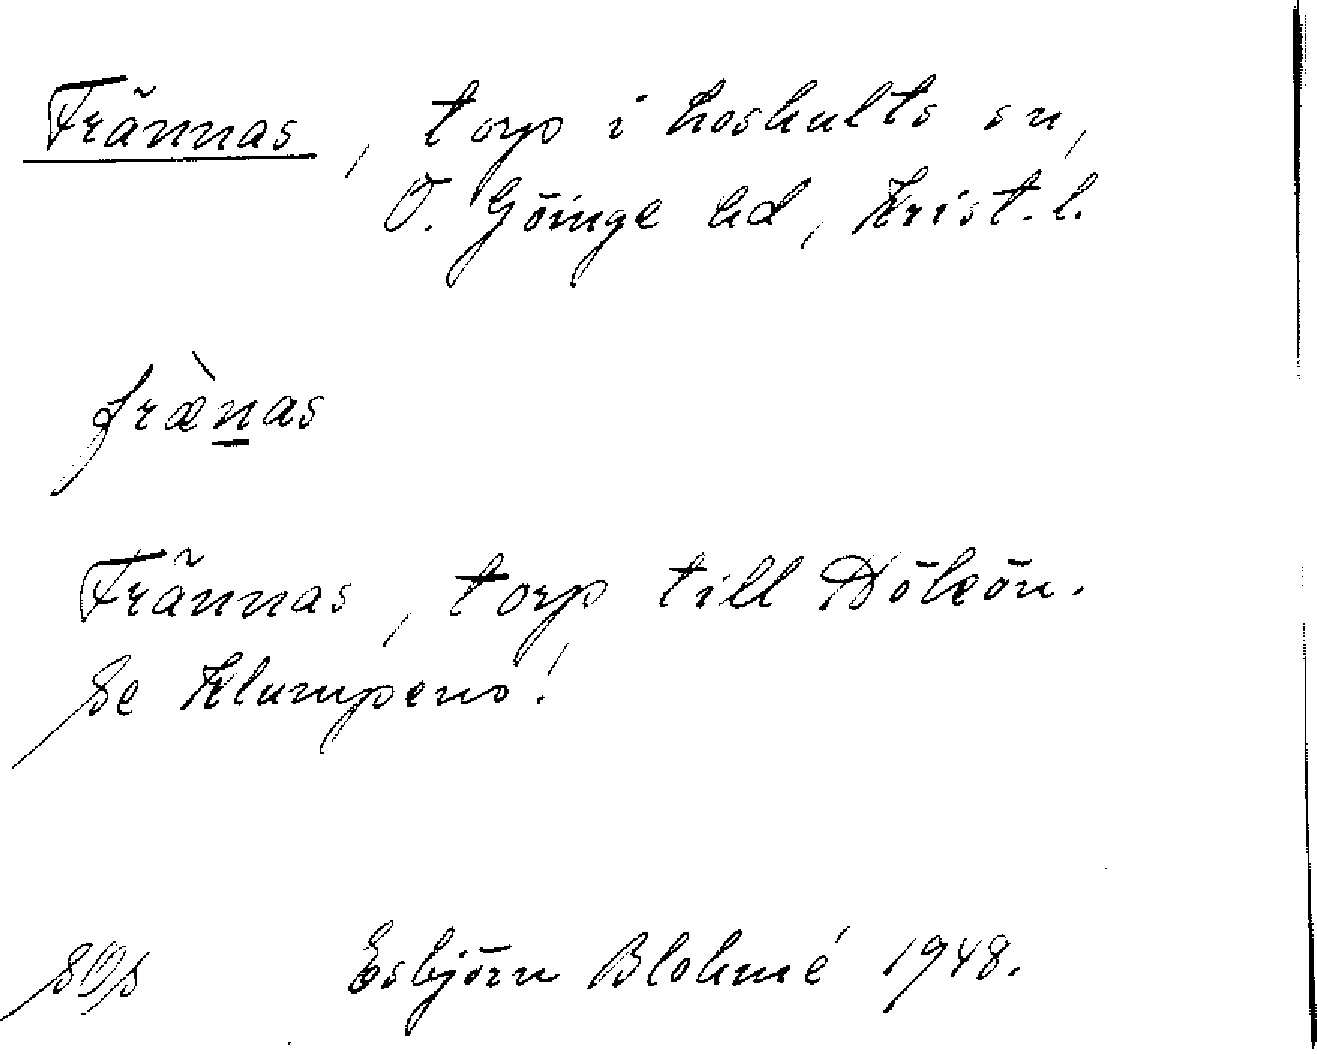 Frännas, torp i Loshults sn,
Ö. Göinge hd, Krist. l.
fræ̀n̲as
Frännas, torp till Dölsön.
Se Klumpens!
SOS Esbjörn Blohmé 1948.